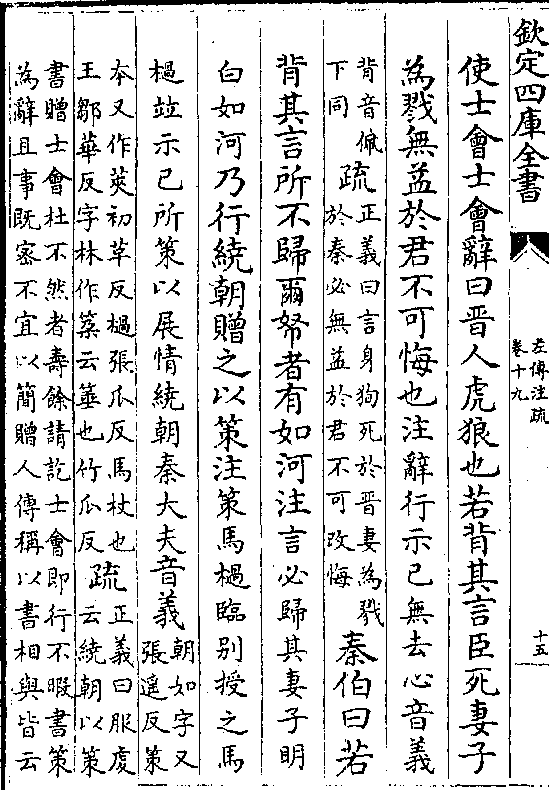 欽定四庫全書
左傳注疏
卷十九
十五
使士會士會辭曰晉人虎狼也若背其言臣死妻子
為戮無益於君不可悔也注辭行示已無去心音義
背音佩
下同
疏
正義曰言身狥死於晉妻為戮
於秦必無益於君不可改悔
秦伯曰若
背其言所不歸爾帑者有如河注言必歸其妻子明
白如河乃行繞朝贈之以策注策馬檛臨别授之馬
檛竝示已所策以展情繞朝秦大夫音義
朝如字又
張遥反策
本又作莢初革反檛張瓜反馬杖也
王鄒華反字林作䇲云箠也竹瓜反
疏
正義曰服虔
云繞朝以策
書贈士會杜不然者壽餘請訖士會即行不暇書策
為辭且事既密不宜以簡贈人傳稱以書相與皆云